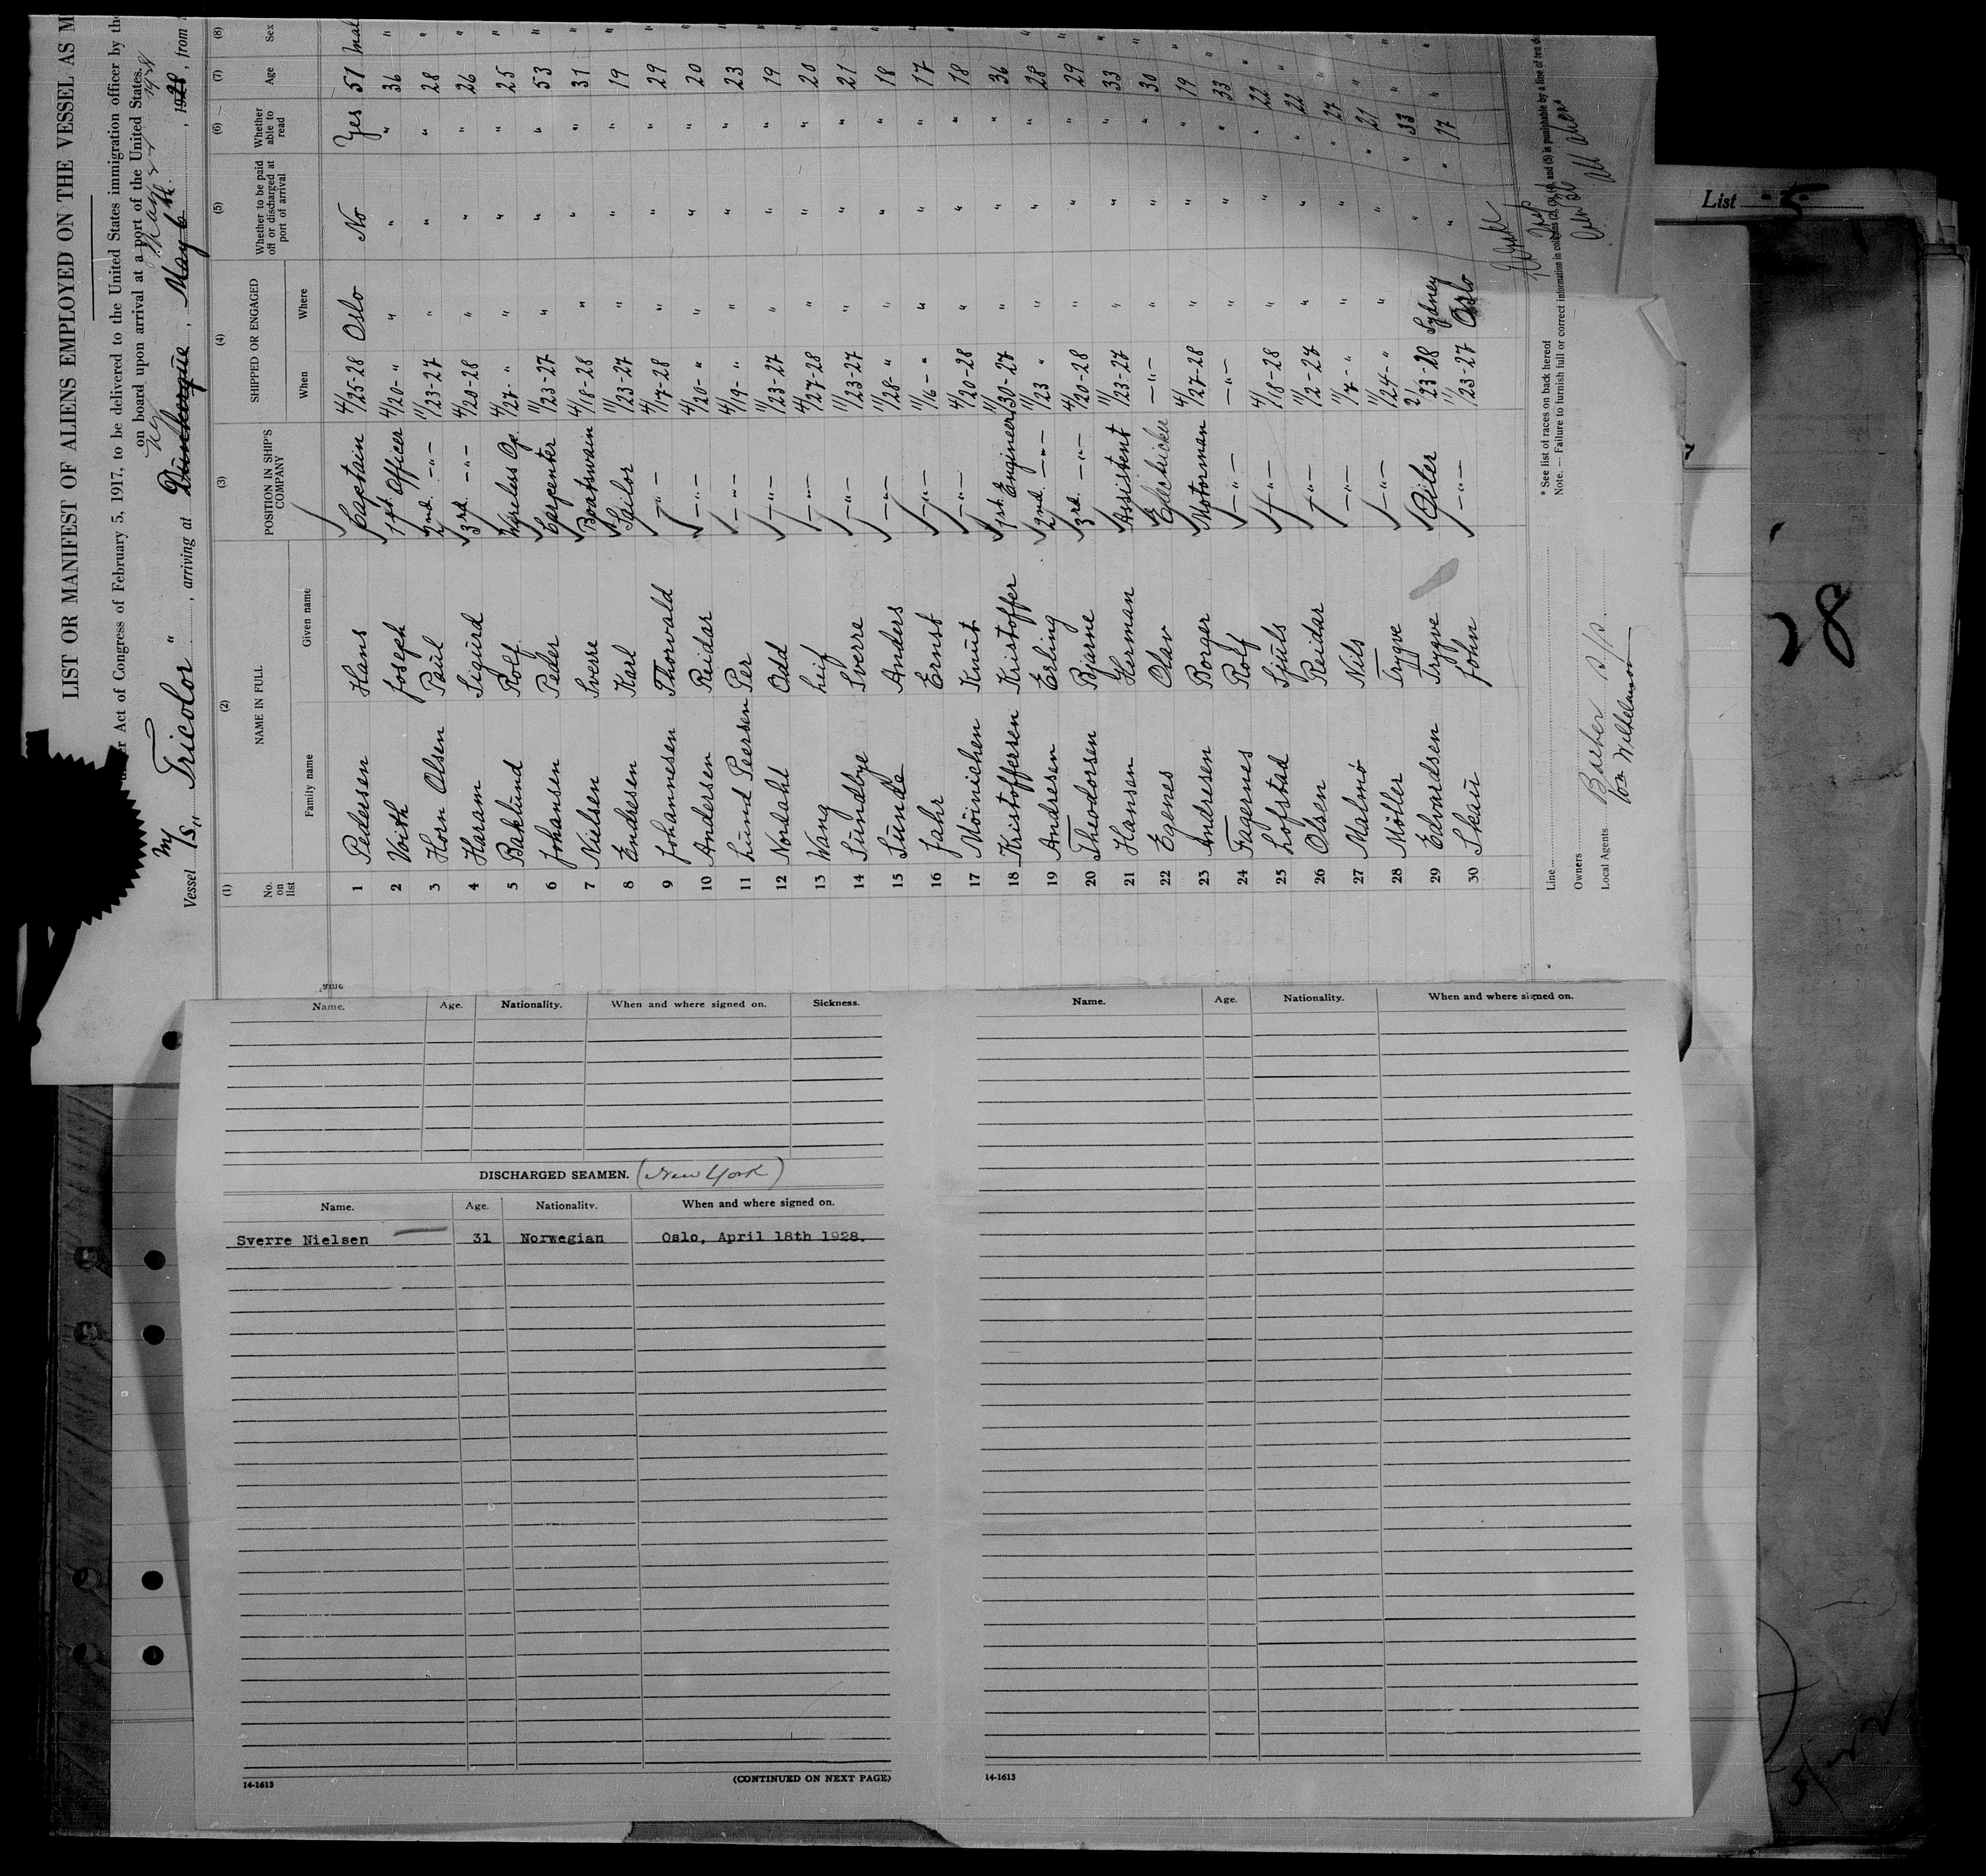 LIST OR MANIFEST OF ALIENS EMPLOYED ON THE VESSEL AS M
Act of Congress of February 5, 1917, to be delivered to the United States immigration officer by the
on board upon arrival at a port of the United States.
Vessel M/S "Tricolor", arriving at Dunkerque, May 6th, 1928, from
(1) (2) (3) (4) (5) (6) (7) (8)
No. on list NAME IN FULL POSITION IN SHIP'S COMPANY SHIPPED OR ENGAGED Whether to be paid off or discharged at port of arrival Whether able to read Age Sex
Family name Given name When Where
1 Pedersen Hans Captain 4/25-28 Oslo No Yes 51 Mal
2 Voith Joseph 1st Officer 4/20-" " " " 36 "
3 Horn Olsen Paul 2nd -"- 11/23-27 " " " 28 "
4 Haram Sigurd 3rd -"- 4/20-28 " " " 26 "
5 Baklund Rolf Wireless Op. 4/27-" " " " 25 "
6 Johansen Peder Carpenter 11/23-27 " " " 53 "
7 Nielsen Sverre Boatswain 4/18-28 " " " 31 "
8 Endresen Karl Sailor 11/23-27 " " " 19 "
9 Johannesen Thorvald -"- 4/17-28 " " " 29 "
10 Andersen Reidar -"- 4/20-" " " " 20 "
11 Lund Peersen Per -"- 4/19-" " " " 23 "
12 Nordahl Odd -"- 11/23-27 " " " 19 "
13 Wang Leif -"- 4/27-28 " " " 20 "
14 Sundbye Sverre -"- 11/23-27 " " " 21 "
15 Sunde Anders -"- 11/28-" " " " 18 "
16 Jahr Ernst -"- 11/16-" " " " 17 "
17 Möinichen Knut -"- 4/20-28 " " " 18 "
18 Kristoffersen Kristoffer 1st Engineer 11/30-27 " " " 36 "
19 Andresen Erling 2nd -"- 11/23 " " " " 28 "
20 Theodorsen Bjarne 3rd -"- 4/20-28 " " " 29 "
21 Hansen Herman Assistent 11/23-27 " " " 33 "
22 Egenes Olav Electricker -"- " " " 30 "
23 Andresen Borger Motorman 4/27-28 " " " 19 "
24 Fagernes Rolf -"- -"- " " " 33 "
25 Lofstad Sjuls -"- 4/18-28 " " " 22 "
26 Olsen Reidar -"- 11/2-27 " " " 22 "
27 Malmö Nils -"- 11/7-" " " " 27 "
28 Möller Trygve -"- 11/24-" " " " 21 "
29 Edvardsen Trygve Oiler 2/23-28 Sydney " " 33 "
30 Skau John -"- 11/23-27 Oslo " " 17 "
Line
* See list of races on back hereof
Note. — Failure to furnish full or correct information in columns (2), (3), (4), and (5) is punishable by a fine of ten do
Owners
Local Agents Barber S/S.
Wilhelmsen
List 5
28
Name. Age. Nationality. When and where signed on. Sickness.
DISCHARGED SEAMEN. (New York)
Name. Age. Nationality. When and where signed on.
Sverre Nielsen 31 Norwegian Oslo, April 18th 1928.
14-1613 (CONTINUED ON NEXT PAGE)
Name. Age. Nationality. When and where signed on.
14-1613